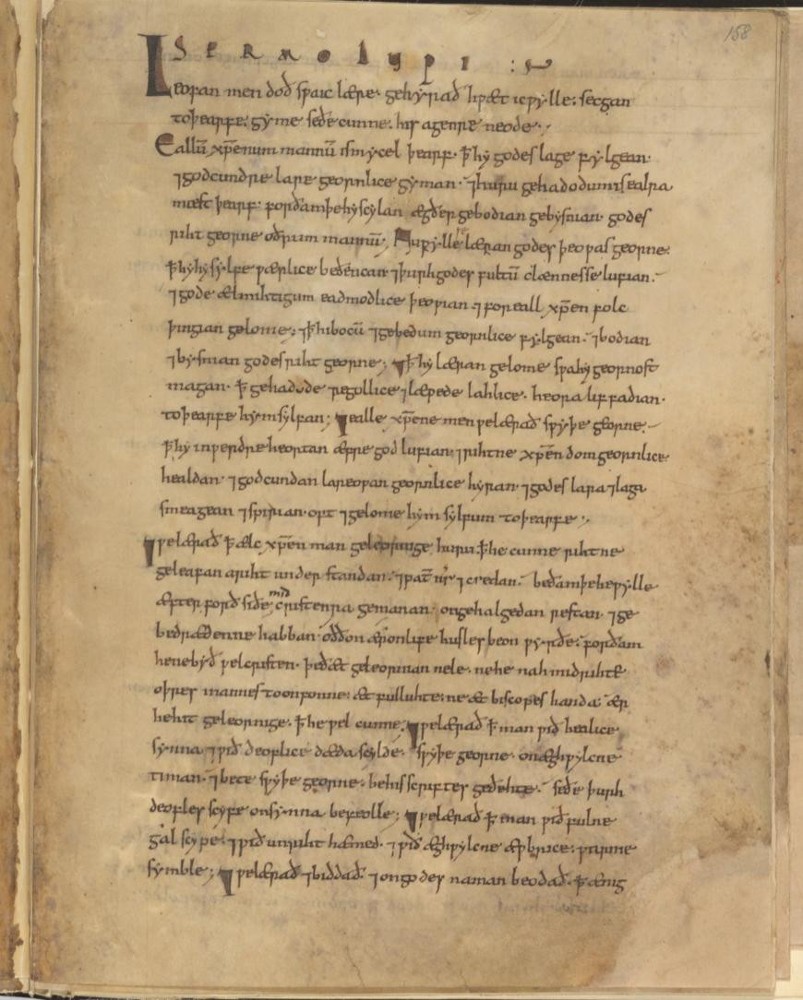 158
SERMO LUPI :~
Leofan men doð swaic lære. gehyrað hwæt ic wylle. secgan
to þearfe. gyme seðe cunne. his agenre neode.
Eallū xp̄enum mannū is mycel þearf. ꝥ hy godes lage fylgean.
⁊ godcundre lare geornlice gyman. ⁊ huru gehadodum is ealra
mæst þearf. forðamþe hy scylan ægðer ge bodian ge bysnian. godes
riht georne oðrum mannū; Nu wylle læran godes þeowas georne.
ꝥ hy hy sylfe wærlice beðencan. ⁊ þurh godes fultū clænnesse lufian.
⁊ gode ælmihtigum eadmodlice þeowian. ⁊ for eall xp̄en folc
þingian gelome; ⁊ ꝥ hi bocū ⁊ gebedum geornlice fylgean. ⁊ bodian
⁊ bysnian godes riht georne; ⁊ ꝥ hy læran gelome swa hy geornost
magan. ꝥ gehadode regollice ⁊ læwede lahlice. heora lif fadian.
to þearfe hym sylfan; ⁊ ealle xp̄ene men we lærað swyþe georne.
ꝥ hy inwerdre heortan æfre god lufian. ⁊ rihtne xp̄en dom geornlice
healdan. ⁊ godcundan lareowan geornlice hyran. ⁊ godes lara ⁊ laga
smeagean ⁊ spirian. oft ⁊ gelome hym sylfum to þearfe.
⁊ we lærað ꝥ ælc xp̄en man geleornige huru. ꝥ he cunne rihtne
geleafan ariht under standan. ⁊ pat̄ nr̄ ⁊ credan. beðamþe he wylle
æfter forð siðe mid cristenra gemanan. on gehalgedan restan. ⁊ ge
bedrædenne habban. oððon æt on life husles beon wyrðe. forðam
he ne byð wel cristen. þe ðæt geleornian nele. ne he nah mid rihte
oþres mannes to onfonne. æt fulluhte. ne æt biscopes handa. ær
he hit geleornige. ꝥ he wel cunne; ⁊ we lærað ꝥ man wið healice
synna ⁊ wið deoplice dæda scylde. swyþe georne. on æghwylcne
timan. ⁊ bete swyþe georne. be his scriftes geðehte. seðe þurh
deofles scyfe on synna befealle; ⁊ we lærað ꝥ man wið fulne
galscype. ⁊ wið unriht hæmed. ⁊ wið æghwylcne æwbrice. warnie
symble; ⁊ we lærað ⁊ biddað. ⁊ on godes naman beodað. ꝥ ænig